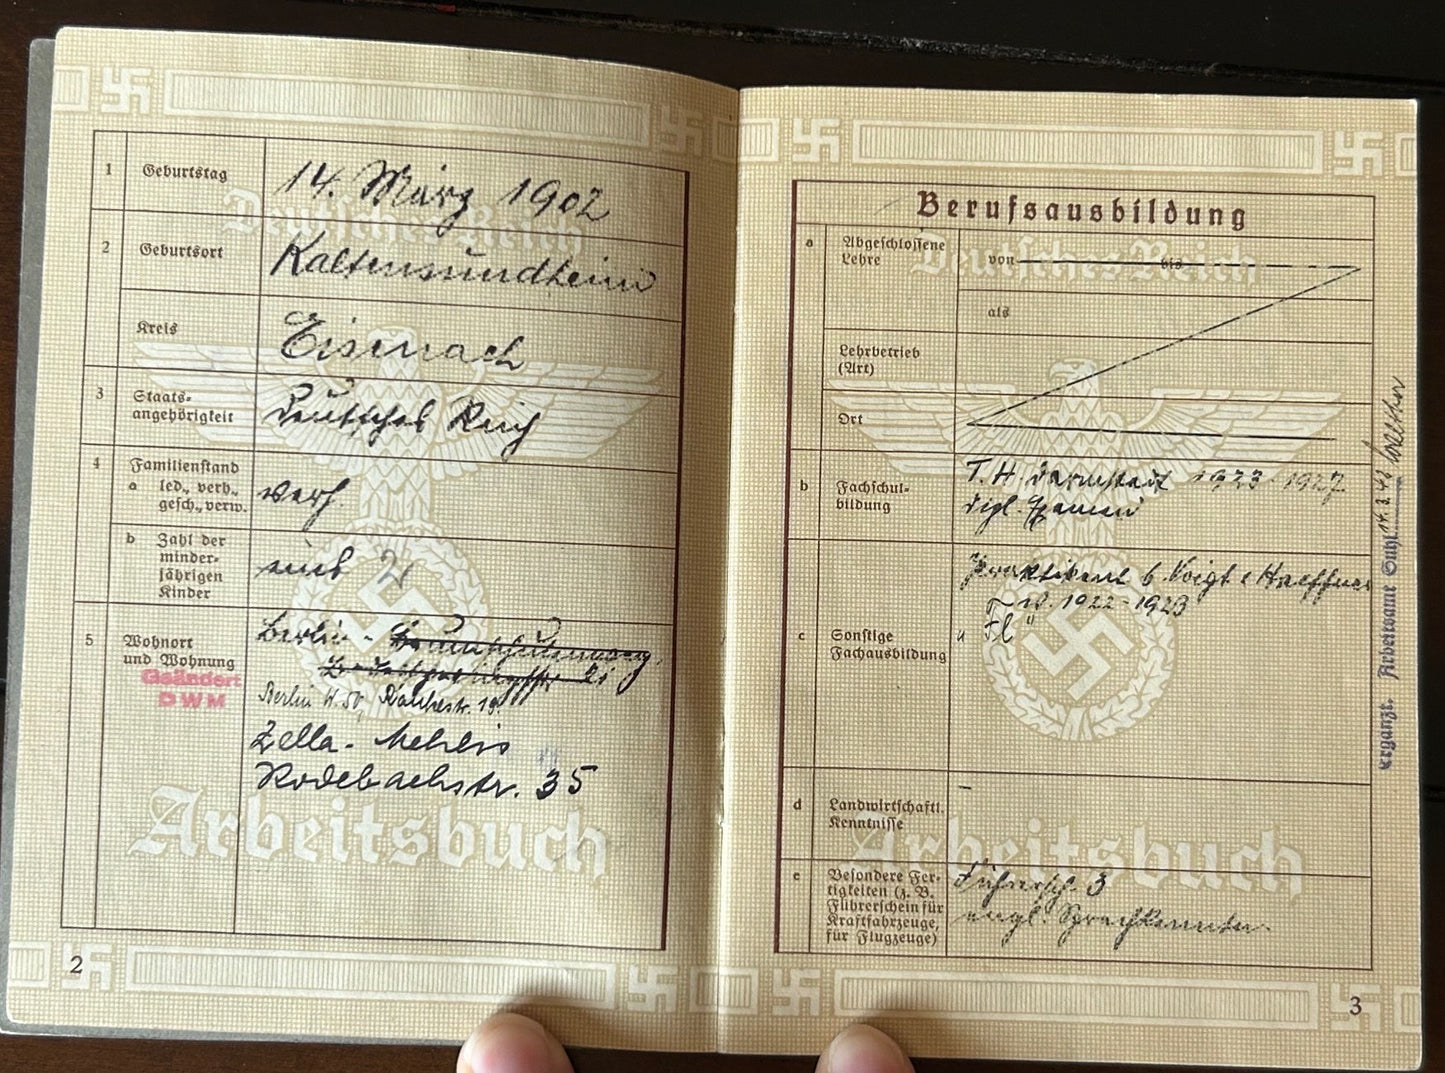 1 Geburtstag 14. März 1902
2 Geburtsort Kaltensundheim
Kreis Eisenach
3 Staats-
angehörigkeit Deutsches Reich
4 Familienstand
a led., verh.,
gesch., verw. verh
b Zahl der
minder-
jährigen
Kinder eins 2
5 Wohnort
und Wohnung Berlin - Baumschulenweg,
Geändert
DWM
Berlin W. 50, Rankestr. 19.
Zella-Mehlis
Rodebachstr. 35
Deutsches Reich
Arbeitsbuch
2
Berufsausbildung
a Abgeschlossene
Lehre von bis
als
Lehrbetrieb
(Art)
Ort
b Fachschul-
bildung T. H. Darmstadt 1923-1927
dipl. Examen
c Sonstige
Fachausbildung Praktikant b. Voigt & Haeffner
1922-1923
d Landwirtschaftl.
Kenntnisse –
e Besondere Fer-
tigkeiten (z. B.
Führerschein für
Kraftfahrzeuge,
für Flugzeuge) Führersch. 3
engl. Sprachkenntn.
Deutsches Reich
Arbeitsbuch
3
ergänzt. Arbeitsamt Suhl